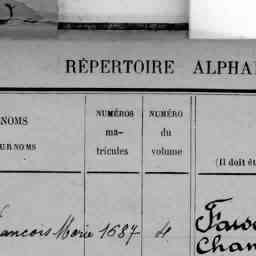 RÉPERTOIRE ALPHA
NOMS
URNOMS
NUMÉROS
ma-
tricules
NUMÉRO
du
volume
(Il doit ê
rancois Marie 1687 4
Chan